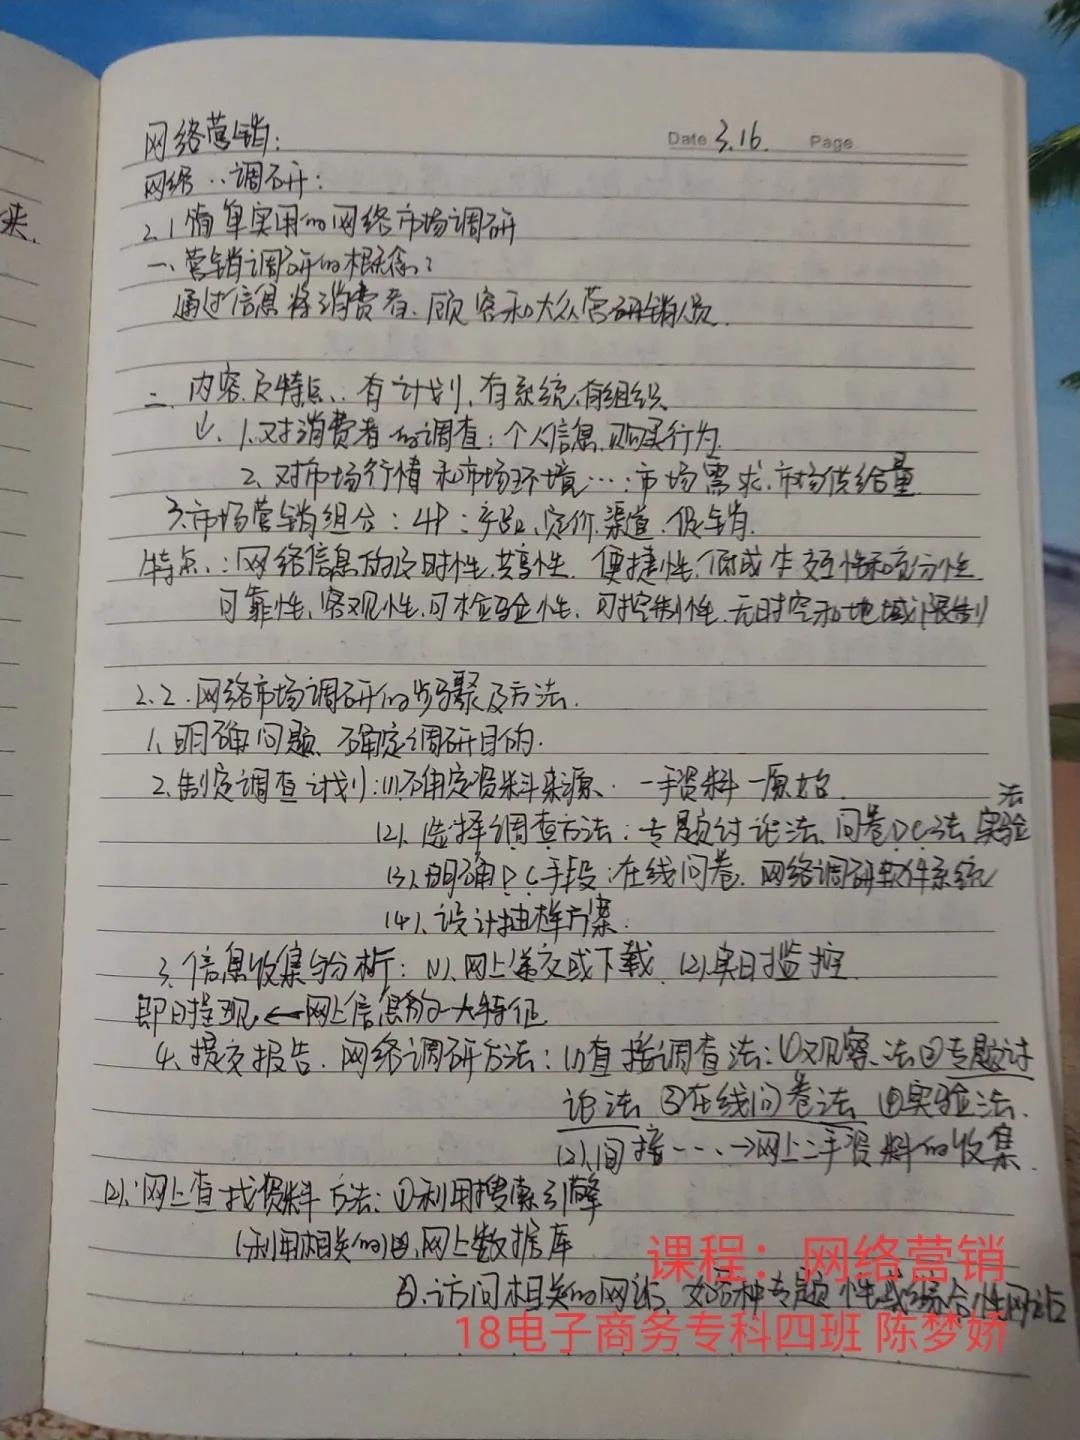 来.
Date 3.16. Page
网络营销:
网络..调研:
2.1简单实用的网络市场调研
一、营销调研的概念:
通过信息将消费者、顾客和大众营研销人员.
二、内容及特点:有计划,有系统,有组织
↓、1.对消费者的调查:个人信息,购买行为
2、对市场行情和市场环境…:市场需求、市场供给量
3.市场营销组合:4P:产品、定价、渠道、促销.
特点:网络信息的及时性、共享性、便捷性、低成本 交互性和充分性
可靠性、客观性、可检验性、可控制性、无时空和地域限制
2.2.网络市场调研的步骤及方法.
1、明确问题、确定调研目的.
2、制定调查计划:(1)确定资料来源. 一手资料 一原始.
(2)、选择调查方法:专题讨论法、问卷DC法 实验法
(3)、明确DC手段:在线问卷、网络调研软件系统
(4)、设计抽样方案.
3、信息收集与分析:(1)、网上递交或下载、(2)、实时监控
即时呈现←网上信息的一大特征
4、提交报告、网络调研方法:(1)直接调查法:①观察法②专题讨
论法 ③在线问卷法 ④实验法.
(2)、间接---→网上二手资料的收集.
(2)、网上查找资料方法:①利用搜索引擎
(利用相关的)④、网上数据库
②、访问相关的网站、如各种专题性或综合性网站
课程:网络营销
18电子商务专科四班 陈梦娇